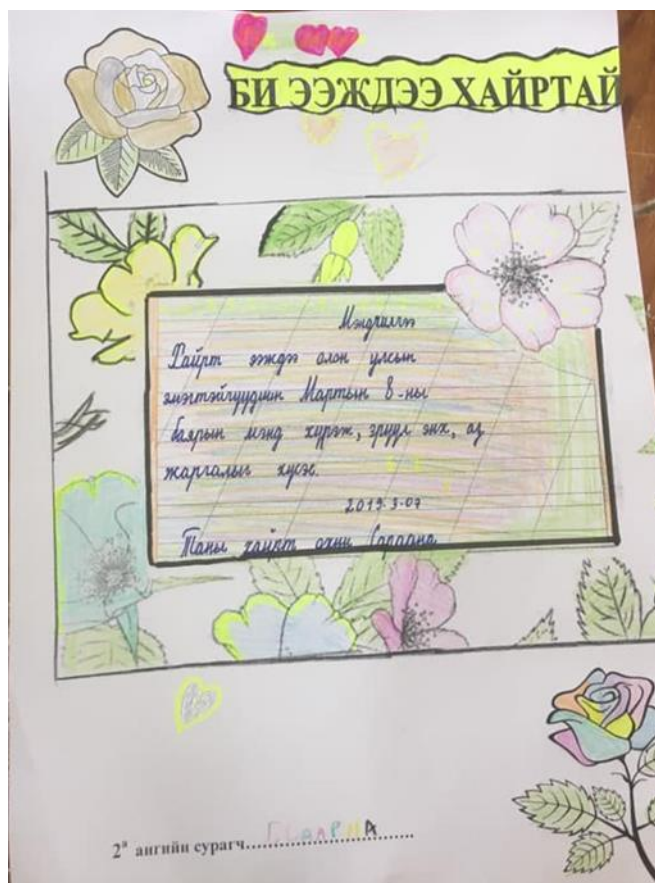 БИ ЭЭЖДЭЭ ХАЙРТАЙ
Мэндчилгээ
Хайрт ээждээ олон улсын
эмэгтэйчүүдийн Мартын 8-ны
баярын мэнд хүргэж, эрүүл энх, аз
жаргалыг хүсэе.
2019.3.07
Таны хайрт охин Сараана
2ᵃ ангийн сурагч